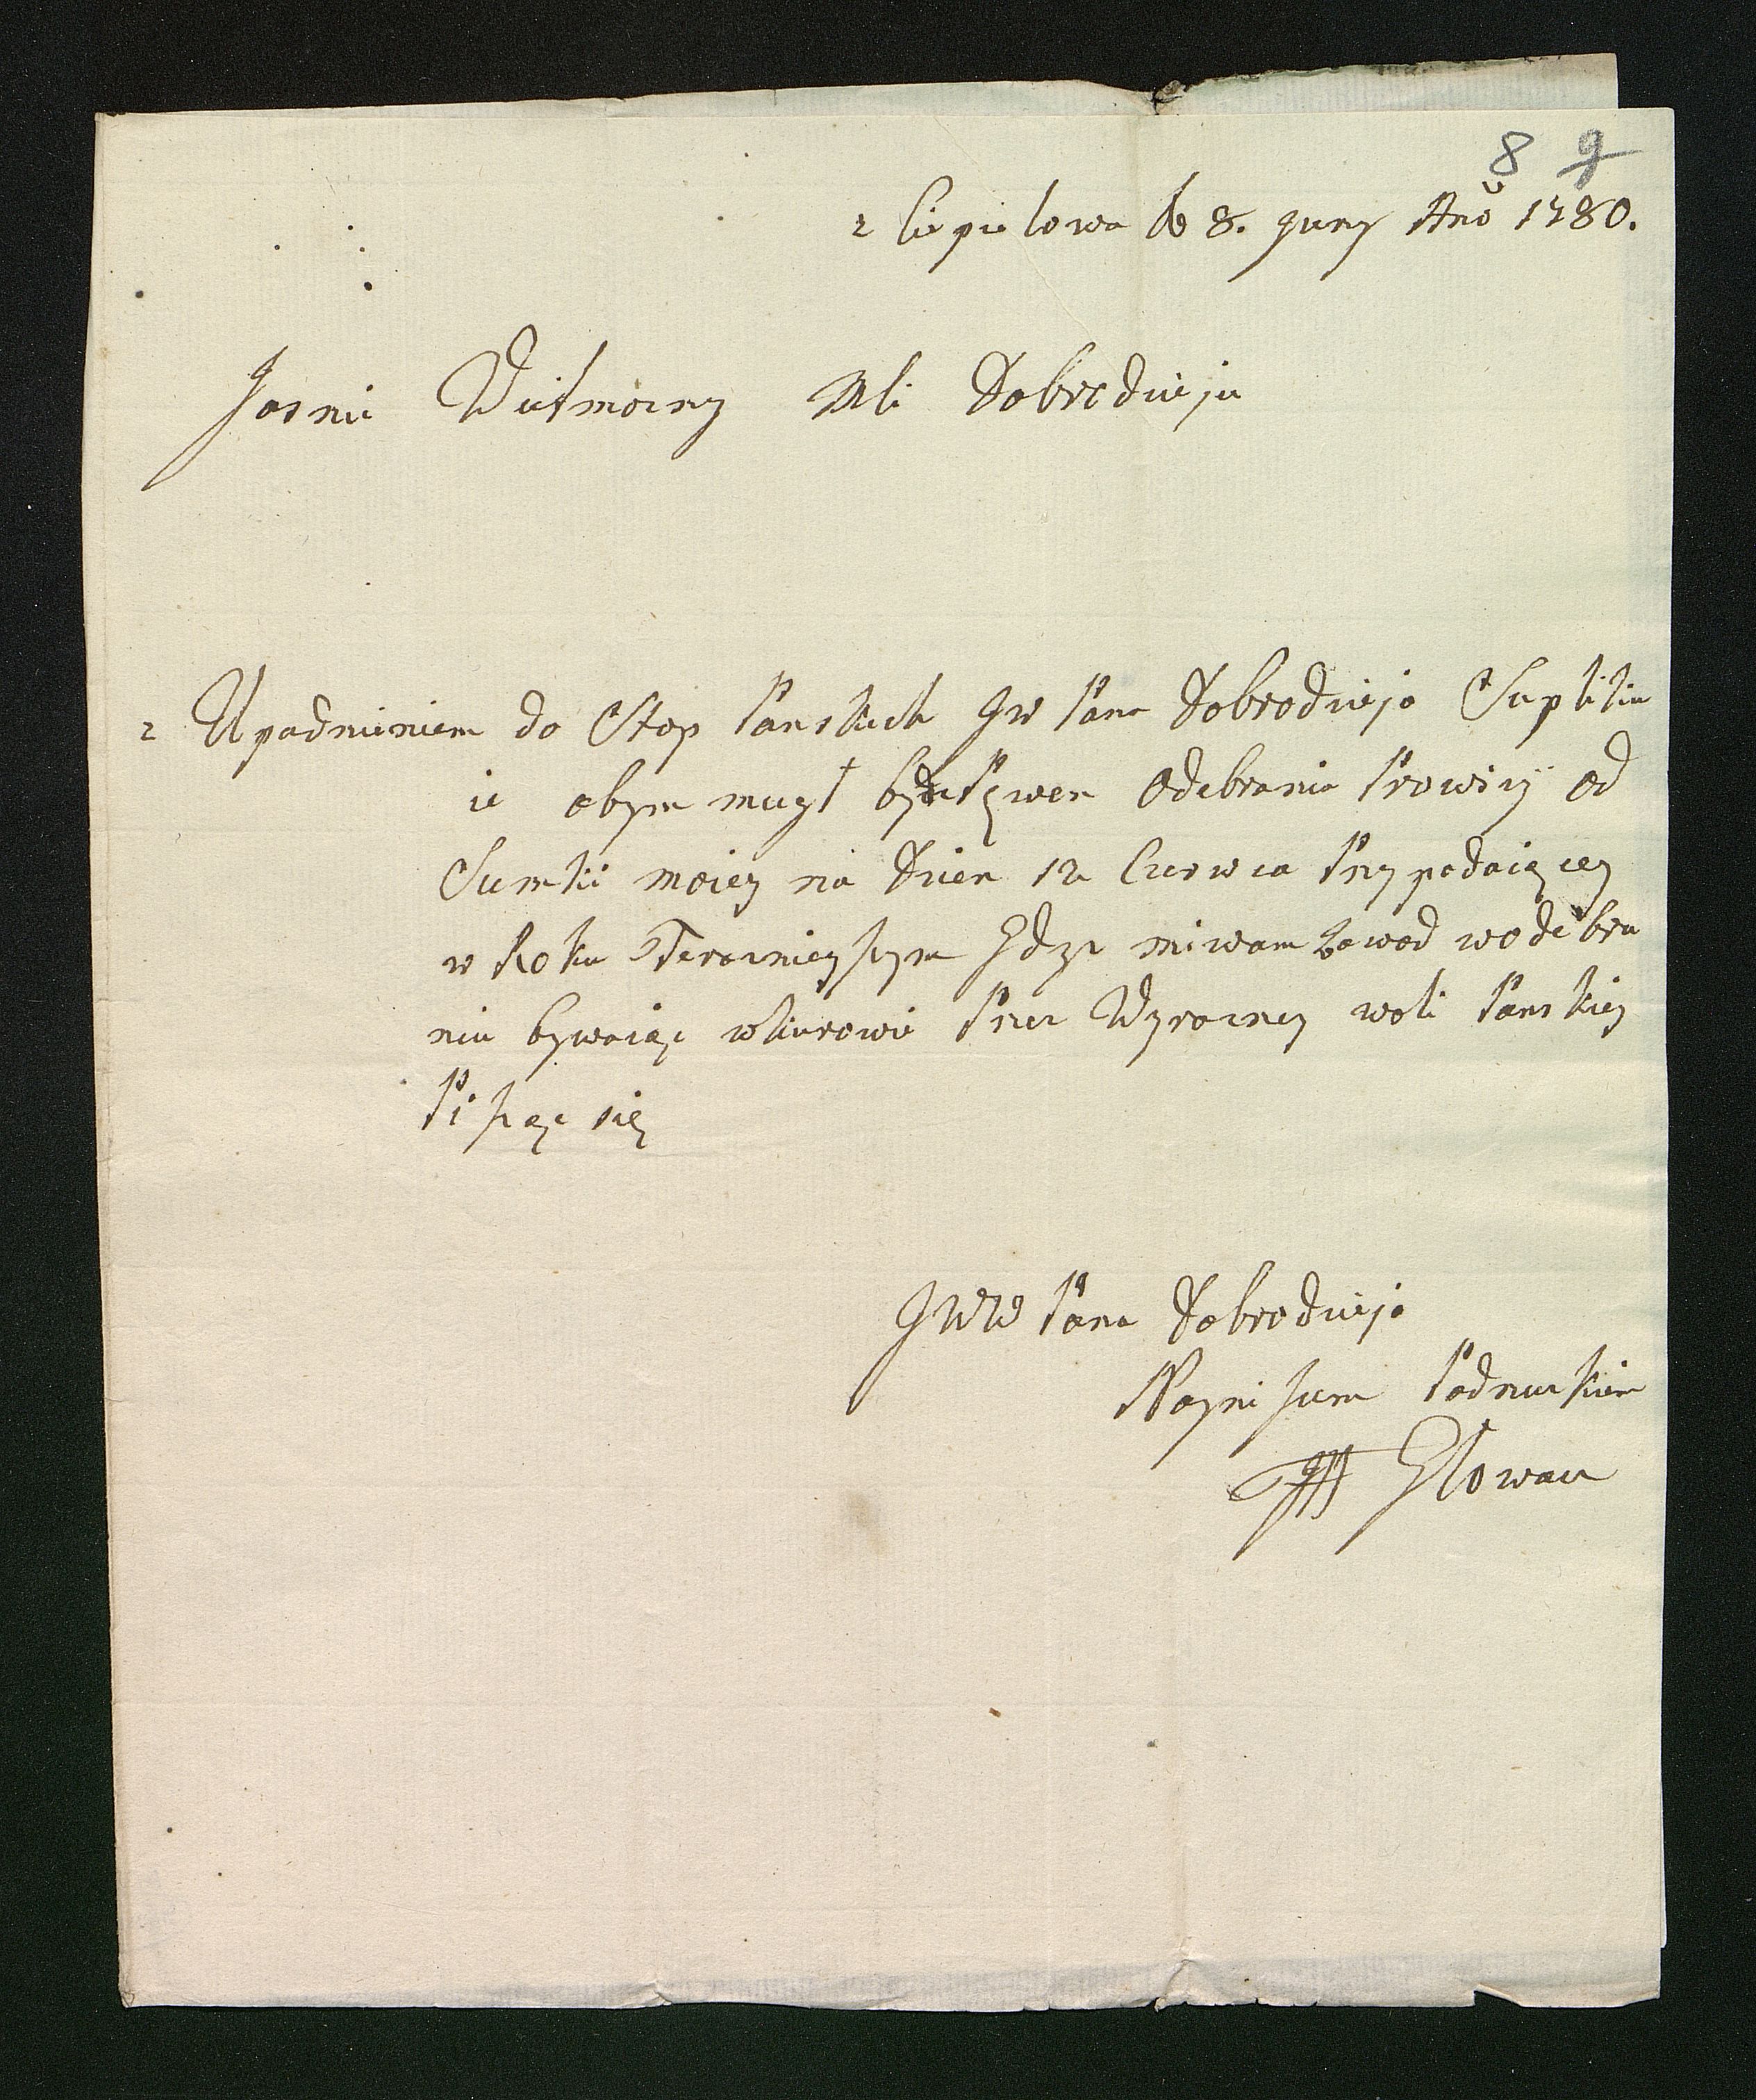 8 9
z Ciepielowa de 8. Juny Anō 1780.
Jasnie Wielmozny Mci Dobrodzieju
z Upadnieniem do Stop Panskich JW Pana Dobrodzieja Supliku
ie abym mugł bydz Pewen Odebrania Prowizÿ Od
Sumki moiey na Dzien 12 Czerwca Przypadaiącey
w Roku Teraznieyszym Gdyz miwam Zawod wodebra
niu bywaiąc wKurowie Przez Wyrazney woli Panskiey
Piszę się
JWW Pana Dobrodzieja
Nayniszem Podnuzkiem
Glowacz